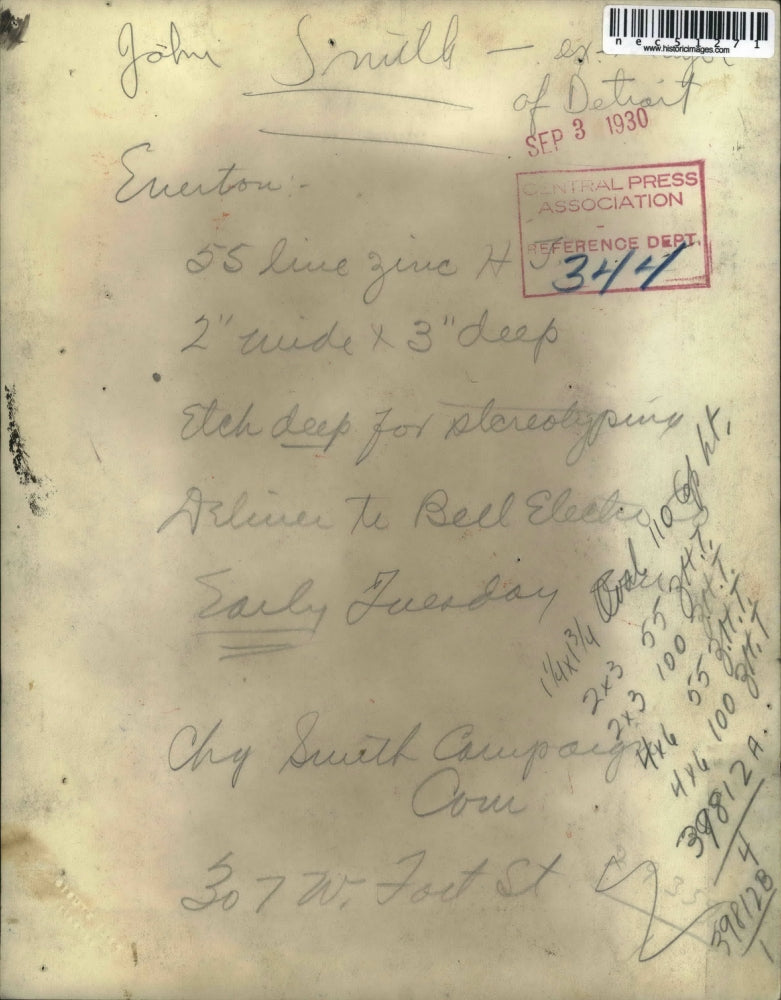 nec51271
www.historicimages.com
John Smith — ex-Mayor
of Detroit
SEP 3 1930
CENTRAL PRESS
ASSOCIATION
-
REFERENCE DEPT.
344
Everton:-
55 line zinc H.T.
2" wide x 3" deep
Etch deep for stereotyping
Deliver to Bell Electro Co
Early Tuesday
1 1/4 x 1 3/4 Oval 110
2x3 55 Z.H.T.
2x3 100 Z.H.T.
4x6 55 Z.H.T.
4x6 100 Z.H.T
39812A.
4
39812B
1
Chg Smith Campaign
Com
307 W. Fort St